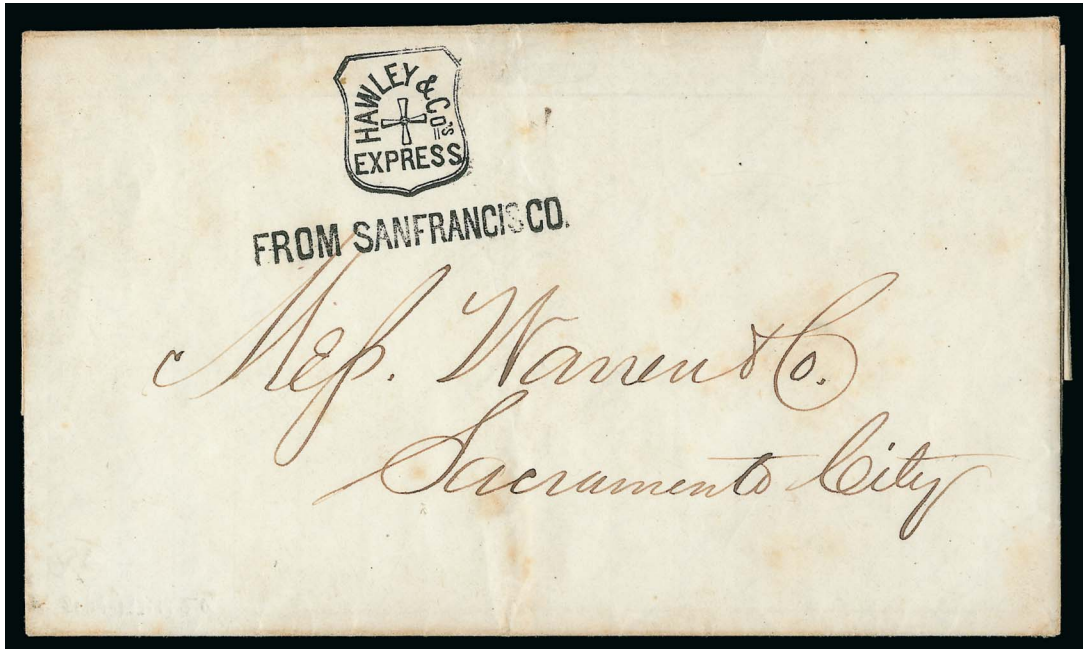 HAWLEY & Co's
EXPRESS
FROM SANFRANCISCO.
Mess. Warren & Co.
Sacramento City